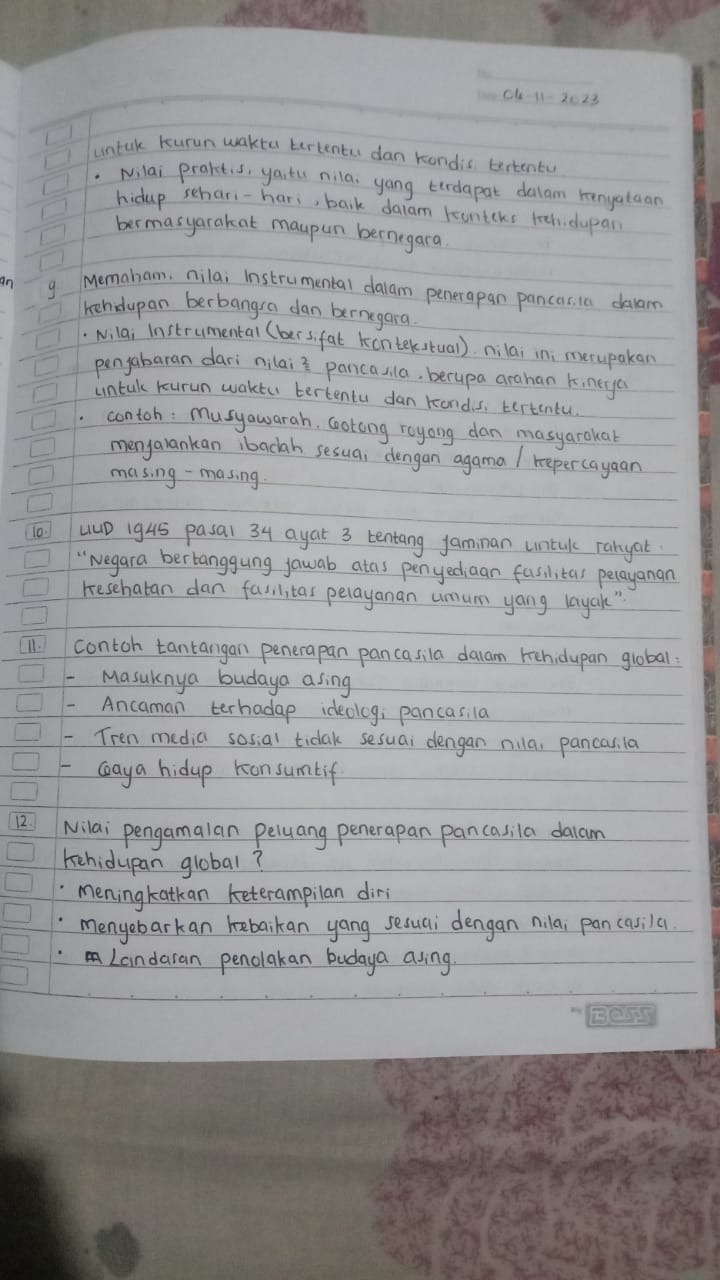 04-11-2023
untuk kurun waktu tertentu dan kondisi tertentu
• Nilai praktis, yaitu nilai yang terdapat dalam kenyataan
hidup sehari-hari, baik dalam konteks kehidupan
bermasyarakat maupun bernegara.
an
9 Memahami nilai Instrumental dalam penerapan pancasila dalam
kehidupan berbangsa dan bernegara.
• Nilai Instrumental (bersifat kontekstual). nilai ini merupakan
penjabaran dari nilai2 pancasila. berupa arahan kinerja
untuk kurun waktu tertentu dan kondisi tertentu.
• contoh: Musyawarah, Gotong royong dan masyarakat
menjalankan ibadah sesuai dengan agama / kepercayaan
masing-masing.
10. UUD 1945 pasal 34 ayat 3 tentang jaminan untuk rakyat.
"Negara bertanggung jawab atas penyediaan fasilitas pelayanan
kesehatan dan fasilitas pelayanan umum yang layak".
11. Contoh tantangan penerapan pancasila dalam kehidupan global:
- Masuknya budaya asing
- Ancaman terhadap ideologi pancasila
- Tren media sosial tidak sesuai dengan nilai pancasila
- Gaya hidup konsumtif.
12. Nilai pengamalan peluang penerapan pancasila dalam
kehidupan global?
• meningkatkan keterampilan diri
• menyebarkan kebaikan yang sesuai dengan nilai pancasila.
• Landasan penolakan budaya asing.
BOSS